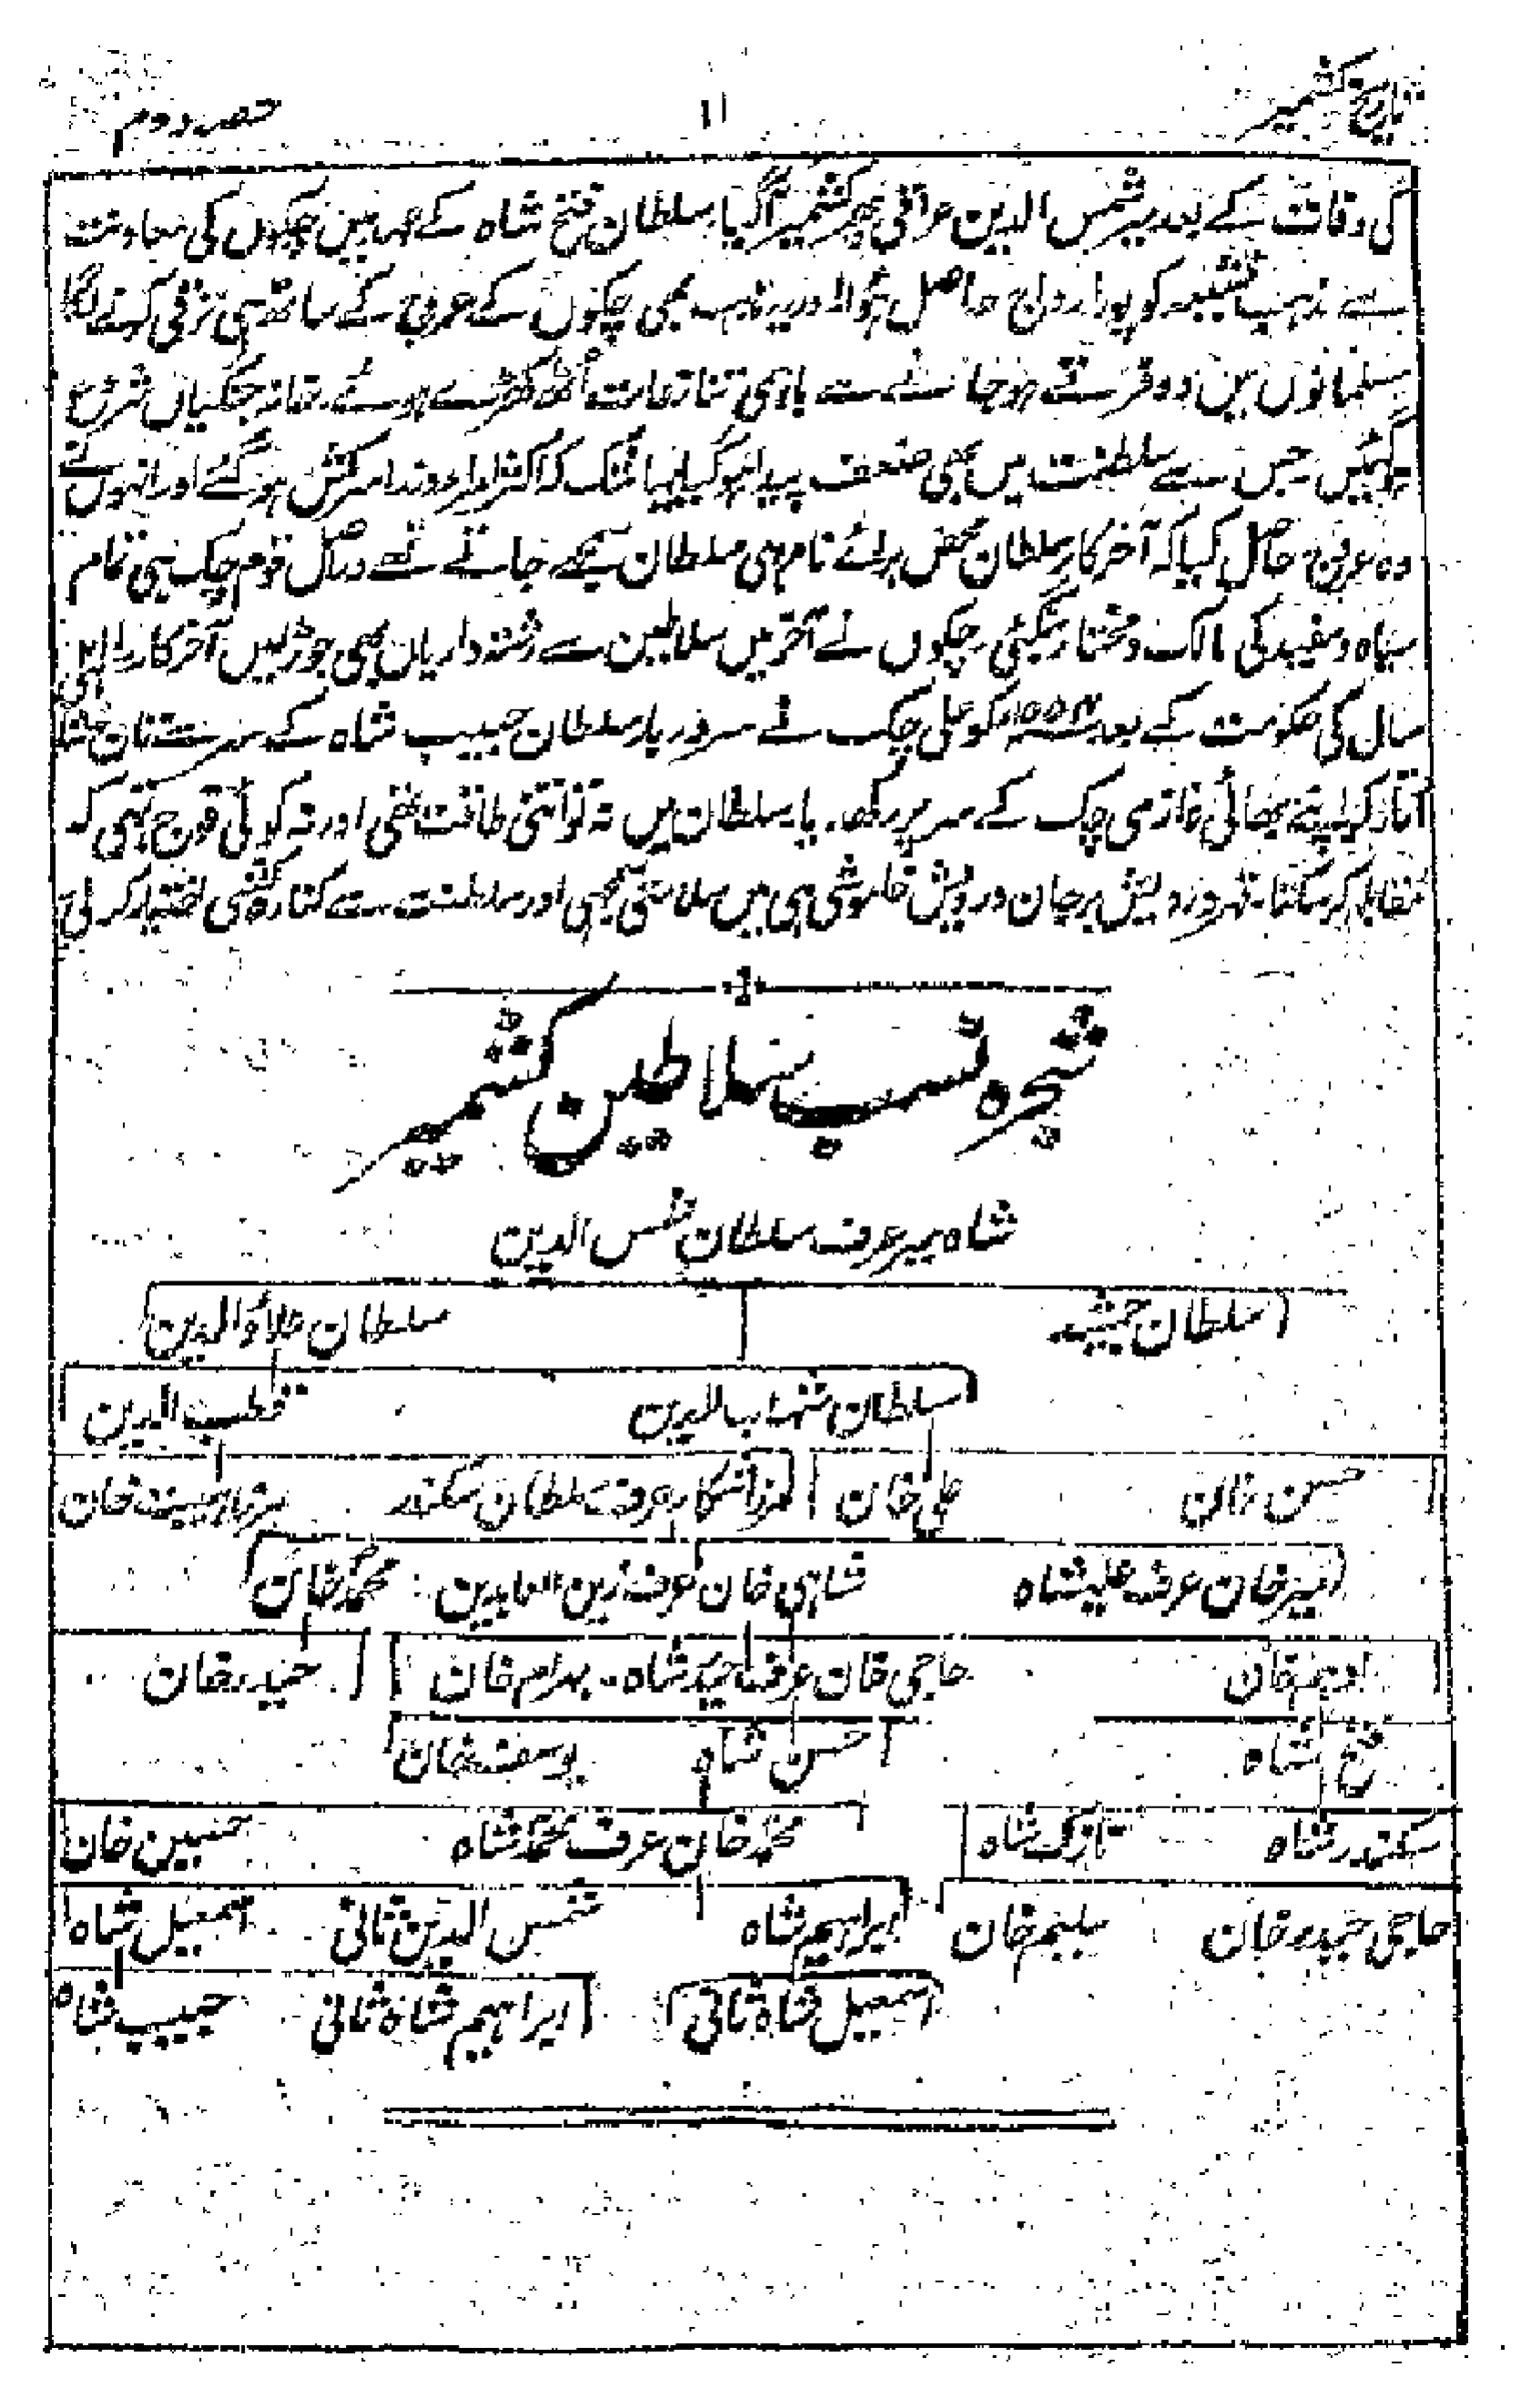 تاریخ کشمیر
۱۱
حصہ دوم
کی وفات کے بعد میر شمس الدین عراقی پھر کشمیر آگیا۔ سلطان فتح شاہ کے عہد میں چکوں کی معاونت
سے مذہب شیعہ کو پورا رواج حاصل ہوا اور یہ مذہب بھی چکوں کے عروج کے ساتھ ہی ترقی کرنے لگا
مسلمانوں میں دو فرقے ہو جانے سے باہمی تنازعات اُٹھ کھڑے ہوئے۔ خانہ جنگیاں شروع
ہوگئیں جس سے سلطنت میں بھی ضعف پیدا ہوگیا یہانتک کہ اکثر امرا و وزرا سرکش ہوگئے اور انہوں نے
وہ عروج حاصل کیا کہ آخر کار سلطان محض برائے نام ہی سلطان سمجھے جاتے تھے دراصل قوم چک ہی تمام
سیاہ و سفید کی مالک و مختار بنگئی۔ چکوں نے آخر میں سلاطین سے رشتہ داریاں بھی جوڑلیں آخر کار
سال کی حکومت کے بعد ۱۵۵۴ء کو علی چک نے سر دربار سلطان حبیب شاہ کے سر سے تاج
اُتار کر اپنے بھائی غازی چک کے سر پر رکھ دیا۔ سلطان میں نہ تو اتنی طاقت تھی اور نہ کوئی فوج تھی کہ
مقابلہ کر سکتا۔ قہر درویش بر جان درویش خاموشی ہی میں سلامتی سمجھی اور سلطنت سے کنارہ کشی اختیار کر لی
شجرہ نسب سلاطین کشمیر
شاہ میر عرف سلطان شمس الدین
سلطان جمشید سلطان علاؤالدین
سلطان شہاب الدین قطب الدین
حسن خان علی خان میرزا شکار عرف سلطان سکندر خان
میر خان عرف علیشاہ شاہی خان عرف زین العابدین محمد خان
ادہم خان حاجی خان عرف حیدر شاہ۔ بہرام خان حیدر خان
فتح شاہ حسن شاہ یوسف خان
سکندر شاہ نازک شاہ محمد خان عرف محمد شاہ حسین خان
حاجی حیدر خان سلیم خان ابراہیم شاہ شمس الدین ثانی اسمعیل شاہ
اسمعیل شاہ ثانی ابراہیم شاہ ثانی حبیب شاہ